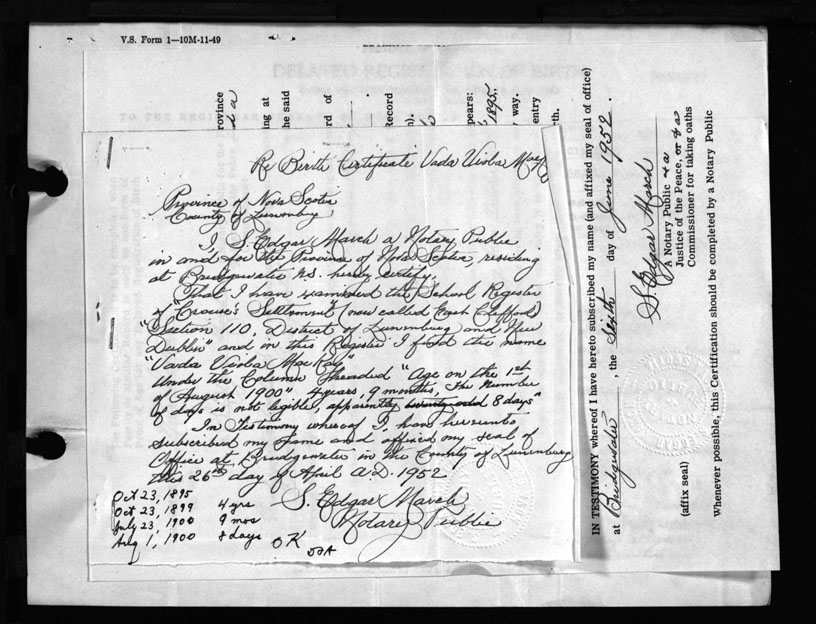 V.S. Form 1—10M-11-49
DELAYED REGISTRATION OF BIRTH
rovince
ing at
he said
rd of
Record
pears:
1895.
way,
entry
th.
Re Birth Certificate Vada Viola
Province of Nova Scotia
County of Lunenburg
I, S. Edgar March a Notary Public
in and for the Province of Nova Scotia, residing
at Bridgewater N.S. hereby certify,
That I have examined the School Register
of "Crouse's Settlement" (now called East Clifford)
"Section 110, District of Lunenburg and New
Dublin" and in this Register I find the name
"Vada Viola MacKay"
Under the Column Headed "Age on the 1st
of August 1900" 4 years, 9 months, The Number
of days is not legible, apparently 8 days"
In Testimony whereof I, have hereunto
subscribed my name and affixed my seal of
Office at Bridgewater in the County of Lunenburg
this 26th day of April A.D. 1952
S. Edgar March
Notary Public
Oct 23, 1895
Oct 23, 1899 4 yrs
July 23, 1900 9 mos
Aug 1, 1900 8 days
OK
IN TESTIMONY whereof I have hereto subscribed my name (and affixed my seal of office)
at Bridgewater, the Sixth day of June 1952.
S. Edgar March
A Notary Public
Justice of the Peace, or
Commissioner for taking oaths
(affix seal)
Whenever possible, this Certification should be completed by a Notary Public